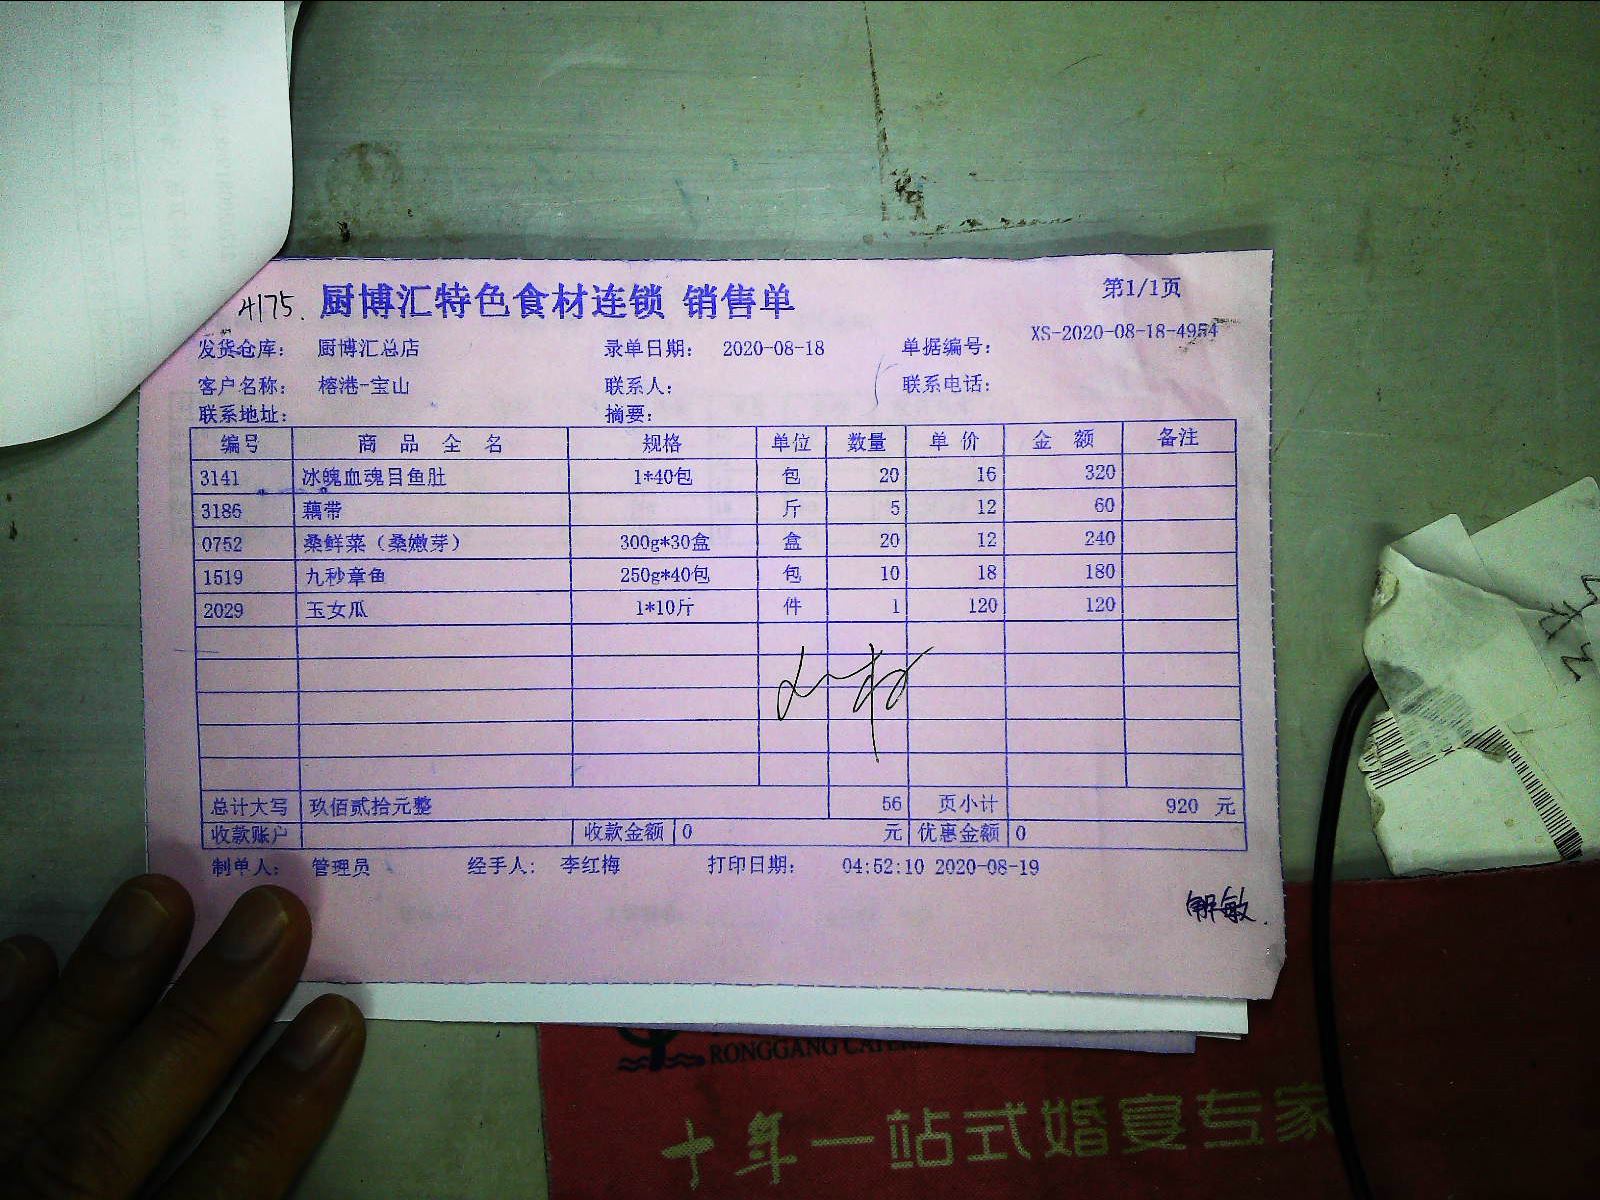 4175. 厨博汇特色食材连锁 销售单 第1/1页
XS-2020-08-18-4954
发货仓库: 厨博汇总店 录单日期: 2020-08-18 单据编号:
客户名称: 榕港-宝山 联系人: 联系电话:
联系地址: 摘要:
编号 商 品 全 名 规格 单位 数量 单 价 金 额 备注
3141 冰魄血魂目鱼肚 1*40包 包 20 16 320
3186 藕带 斤 5 12 60
0752 桑鲜菜（桑嫩芽） 300g*30盒 盒 20 12 240
1519 九秒章鱼 250g*40包 包 10 18 180
2029 玉女瓜 1*10斤 件 1 120 120
总计大写 玖佰贰拾元整 56 页小计 920 元
收款账户 收款金额 0 元 优惠金额 0
制单人: 管理员 经手人: 李红梅 打印日期: 04:52:10 2020-08-19
解敏.
RONGGANG
十年一站式婚宴专家